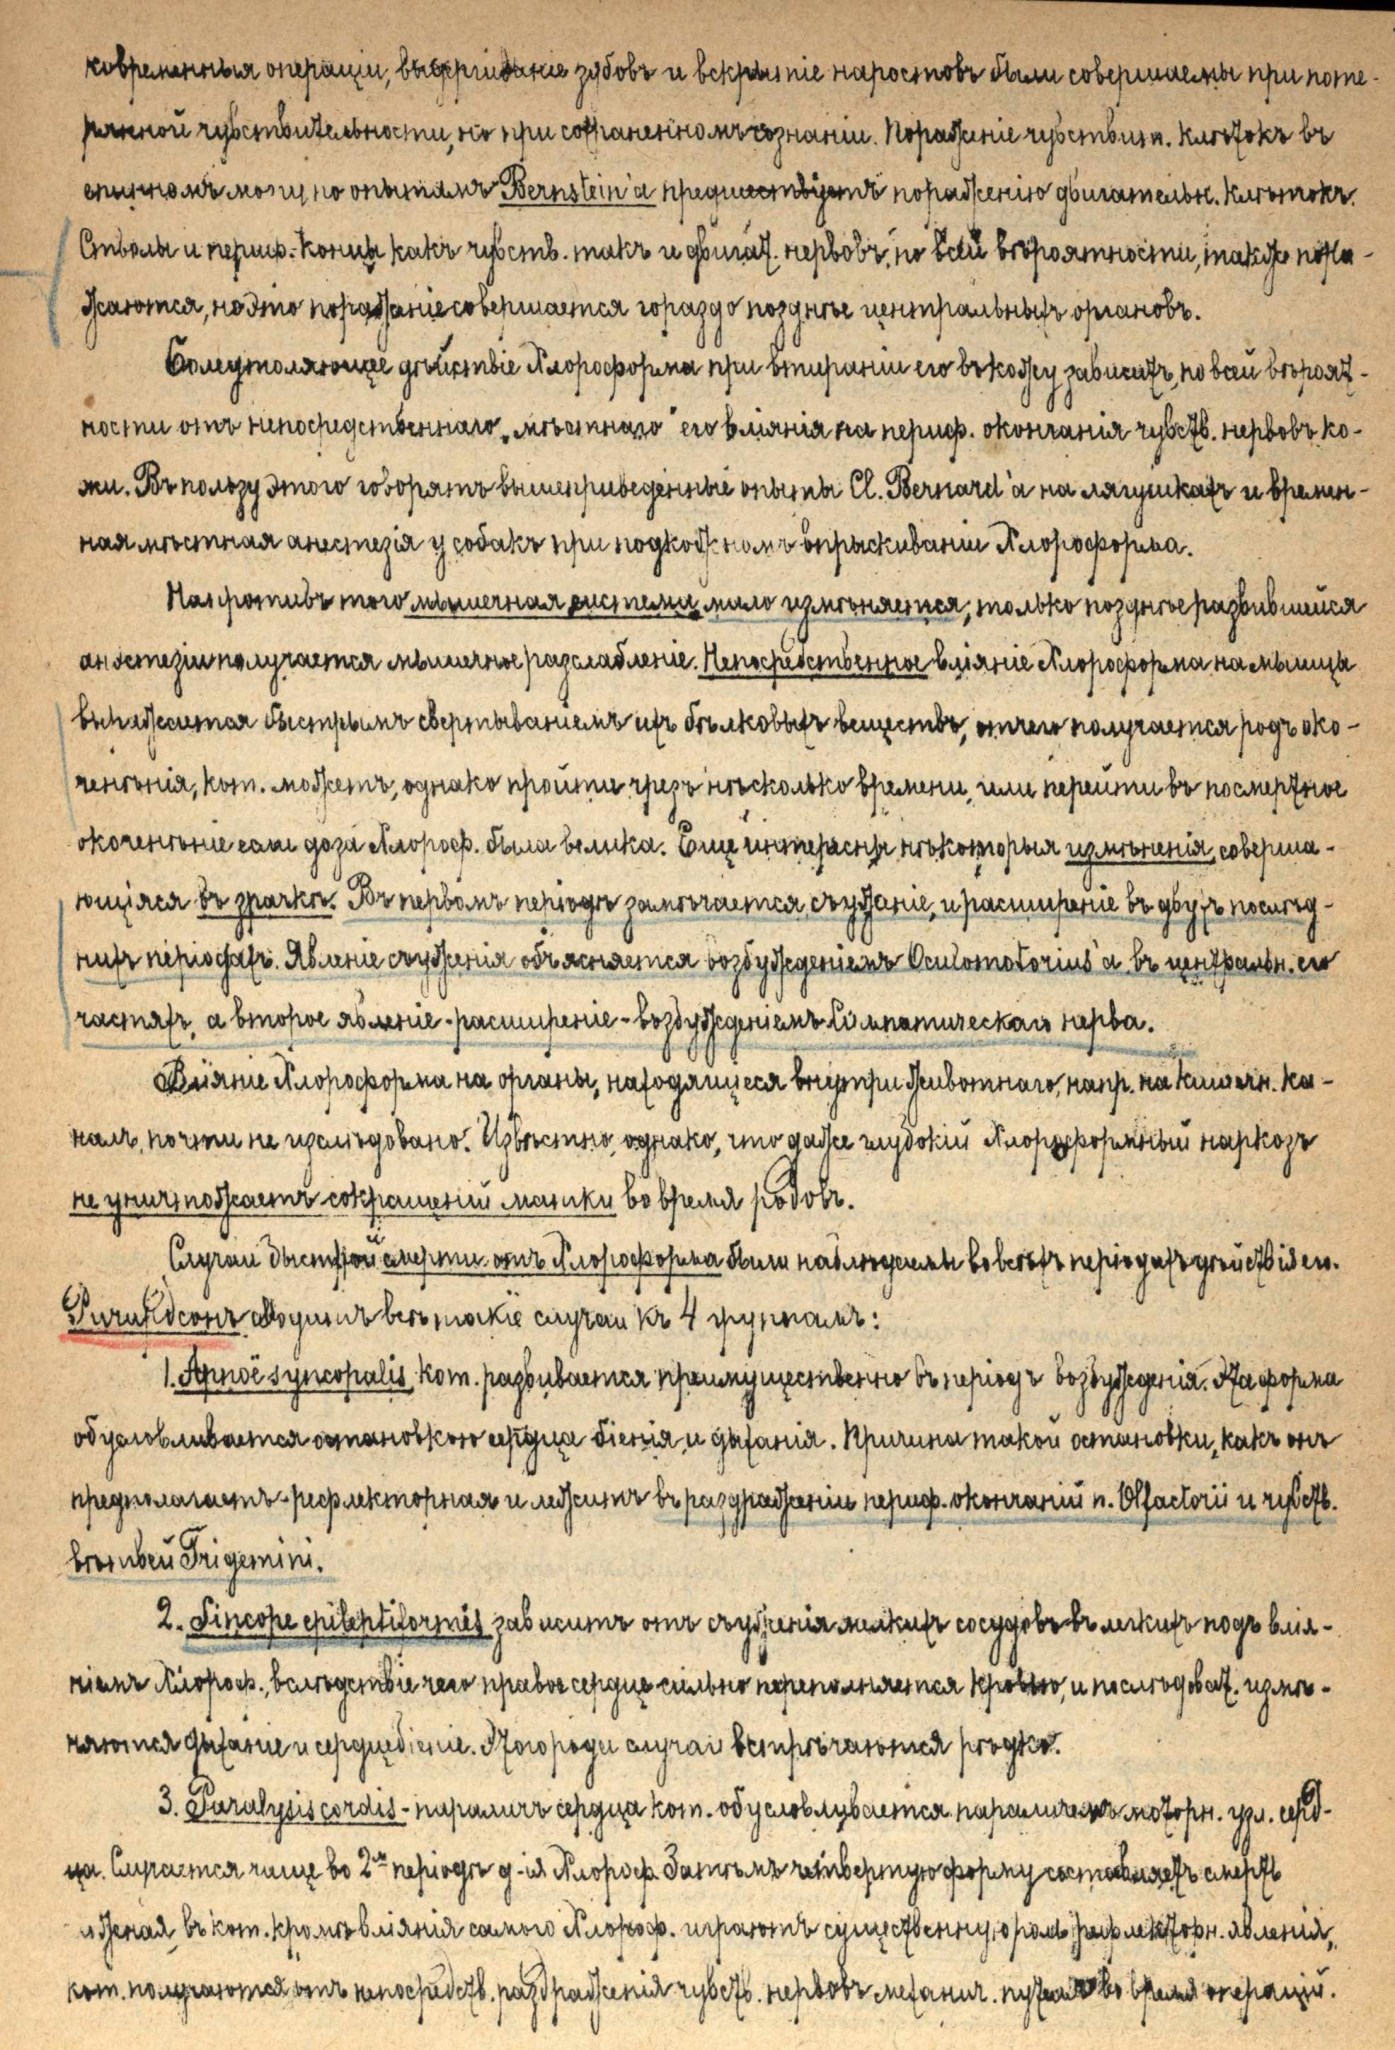 ковременныя операціи, выдергиваніе зубовъ и вскрытіе наростовъ были совершаемы при поте-
рянной чувствительности, но при сохраненномъ сознаніи. Пораженіе чувствит. клѣтокъ въ
спинномъ мозгу по опытамъ Bernstein'а предшествуетъ пораженію двигательн. клѣтокъ.
Стволы и периф. концы какъ чувств. такъ и двигат. нервовъ, по всей вѣроятности, также пора-
жаются, но это пораженіе совершается гораздо позднѣе центральныхъ органовъ.
Болеутоляющее дѣйствіе Хлороформа при втираніи его въ кожу зависитъ, по всей вѣроят-
ности отъ непосредственнаго „мѣстнаго" его вліянія на периф. окончанія чувств. нервовъ ко-
жи. Въ пользу этого говорятъ вышеприведенные опыты Cl. Bernard'а на лягушкахъ и времен-
ная мѣстная анестезія у собакъ при подкожномъ впрыскиваніи Хлороформа.
Напротивъ того мышечная система мало измѣняется, только позднѣе развившейся
анэстезіи получается мышечное разслабленіе. Непосредственное вліяніе Хлороформа на мышцы
выражается быстрымъ свертываніемъ ихъ бѣлковыхъ веществъ, отчего получается родъ око-
ченѣнія, кот. можетъ, однако пройти чрезъ нѣсколько времени, или перейти въ посмертное
окоченѣніе если доза Хлороф. была велика. Еще интересны нѣкоторыя измѣненія, соверша-
ющіяся въ зрачкѣ. Въ первомъ періодѣ замѣчается съуженіе, и расширеніе въ двухъ послѣд-
нихъ періодахъ. Явленіе съуженія объясняется возбужденіемъ Oculomotorius'а въ центральн. его
частяхъ, а второе явленіе - расширеніе - возбужденіемъ Симпатическаго нерва.
Вліяніе Хлороформа на органы, находящіеся внутри животнаго, напр. на кишечн. ка-
налъ, почти не изслѣдовано. Извѣстно, однако, что даже глубокій Хлороформный наркозъ
не уничтожаетъ сокращеній матки во время родовъ.
Случаи быстрой смерти отъ Хлороформа были наблюдаемы во всѣхъ періодахъ дѣйствія его.
Ричардсонъ сводитъ всѣ такіе случаи къ 4 группамъ:
1. Apnoë syncopalis, кот. развивается преимущественно въ періодъ возбужденія. Эта форма
обусловливается остановкою сердца біенія и дыханія. Причина такой остановки, какъ онъ
предполагаетъ - рефлекторная и лежитъ въ раздраженіи периф. окончаній n. Olfactorii и чувств.
вѣтвей Trigemini.
2. Sincope epileptiformis зависитъ отъ съуженія мелкихъ сосудовъ въ легкихъ подъ влія-
ніемъ Хлороф., вслѣдствіе чего правое сердце сильно переполняется кровью, и послѣдоват. измѣ-
няются дыханіе и сердцебіеніе. Этого рода случаи встрѣчаются рѣдко.
3. Paralysis cordis - параличъ сердца кот. обусловливается параличемъ моторн. узл. серд-
ца. Случается чаще во 2мъ періодѣ д-ія Хлороф. Затѣмъ четвертую форму составляетъ смерть
въ кот. кромѣ вліянія самого Хлороф. играютъ существенную роль рефлекторн. явленія,
кот. получаются отъ непосредств. раздраженія чувств. нервовъ механич. путемъ во время операцій.